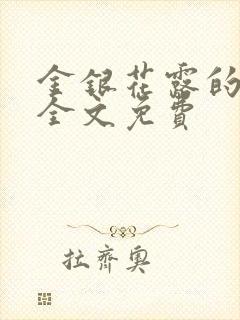 金银花露的
全文免費
拉齊奥